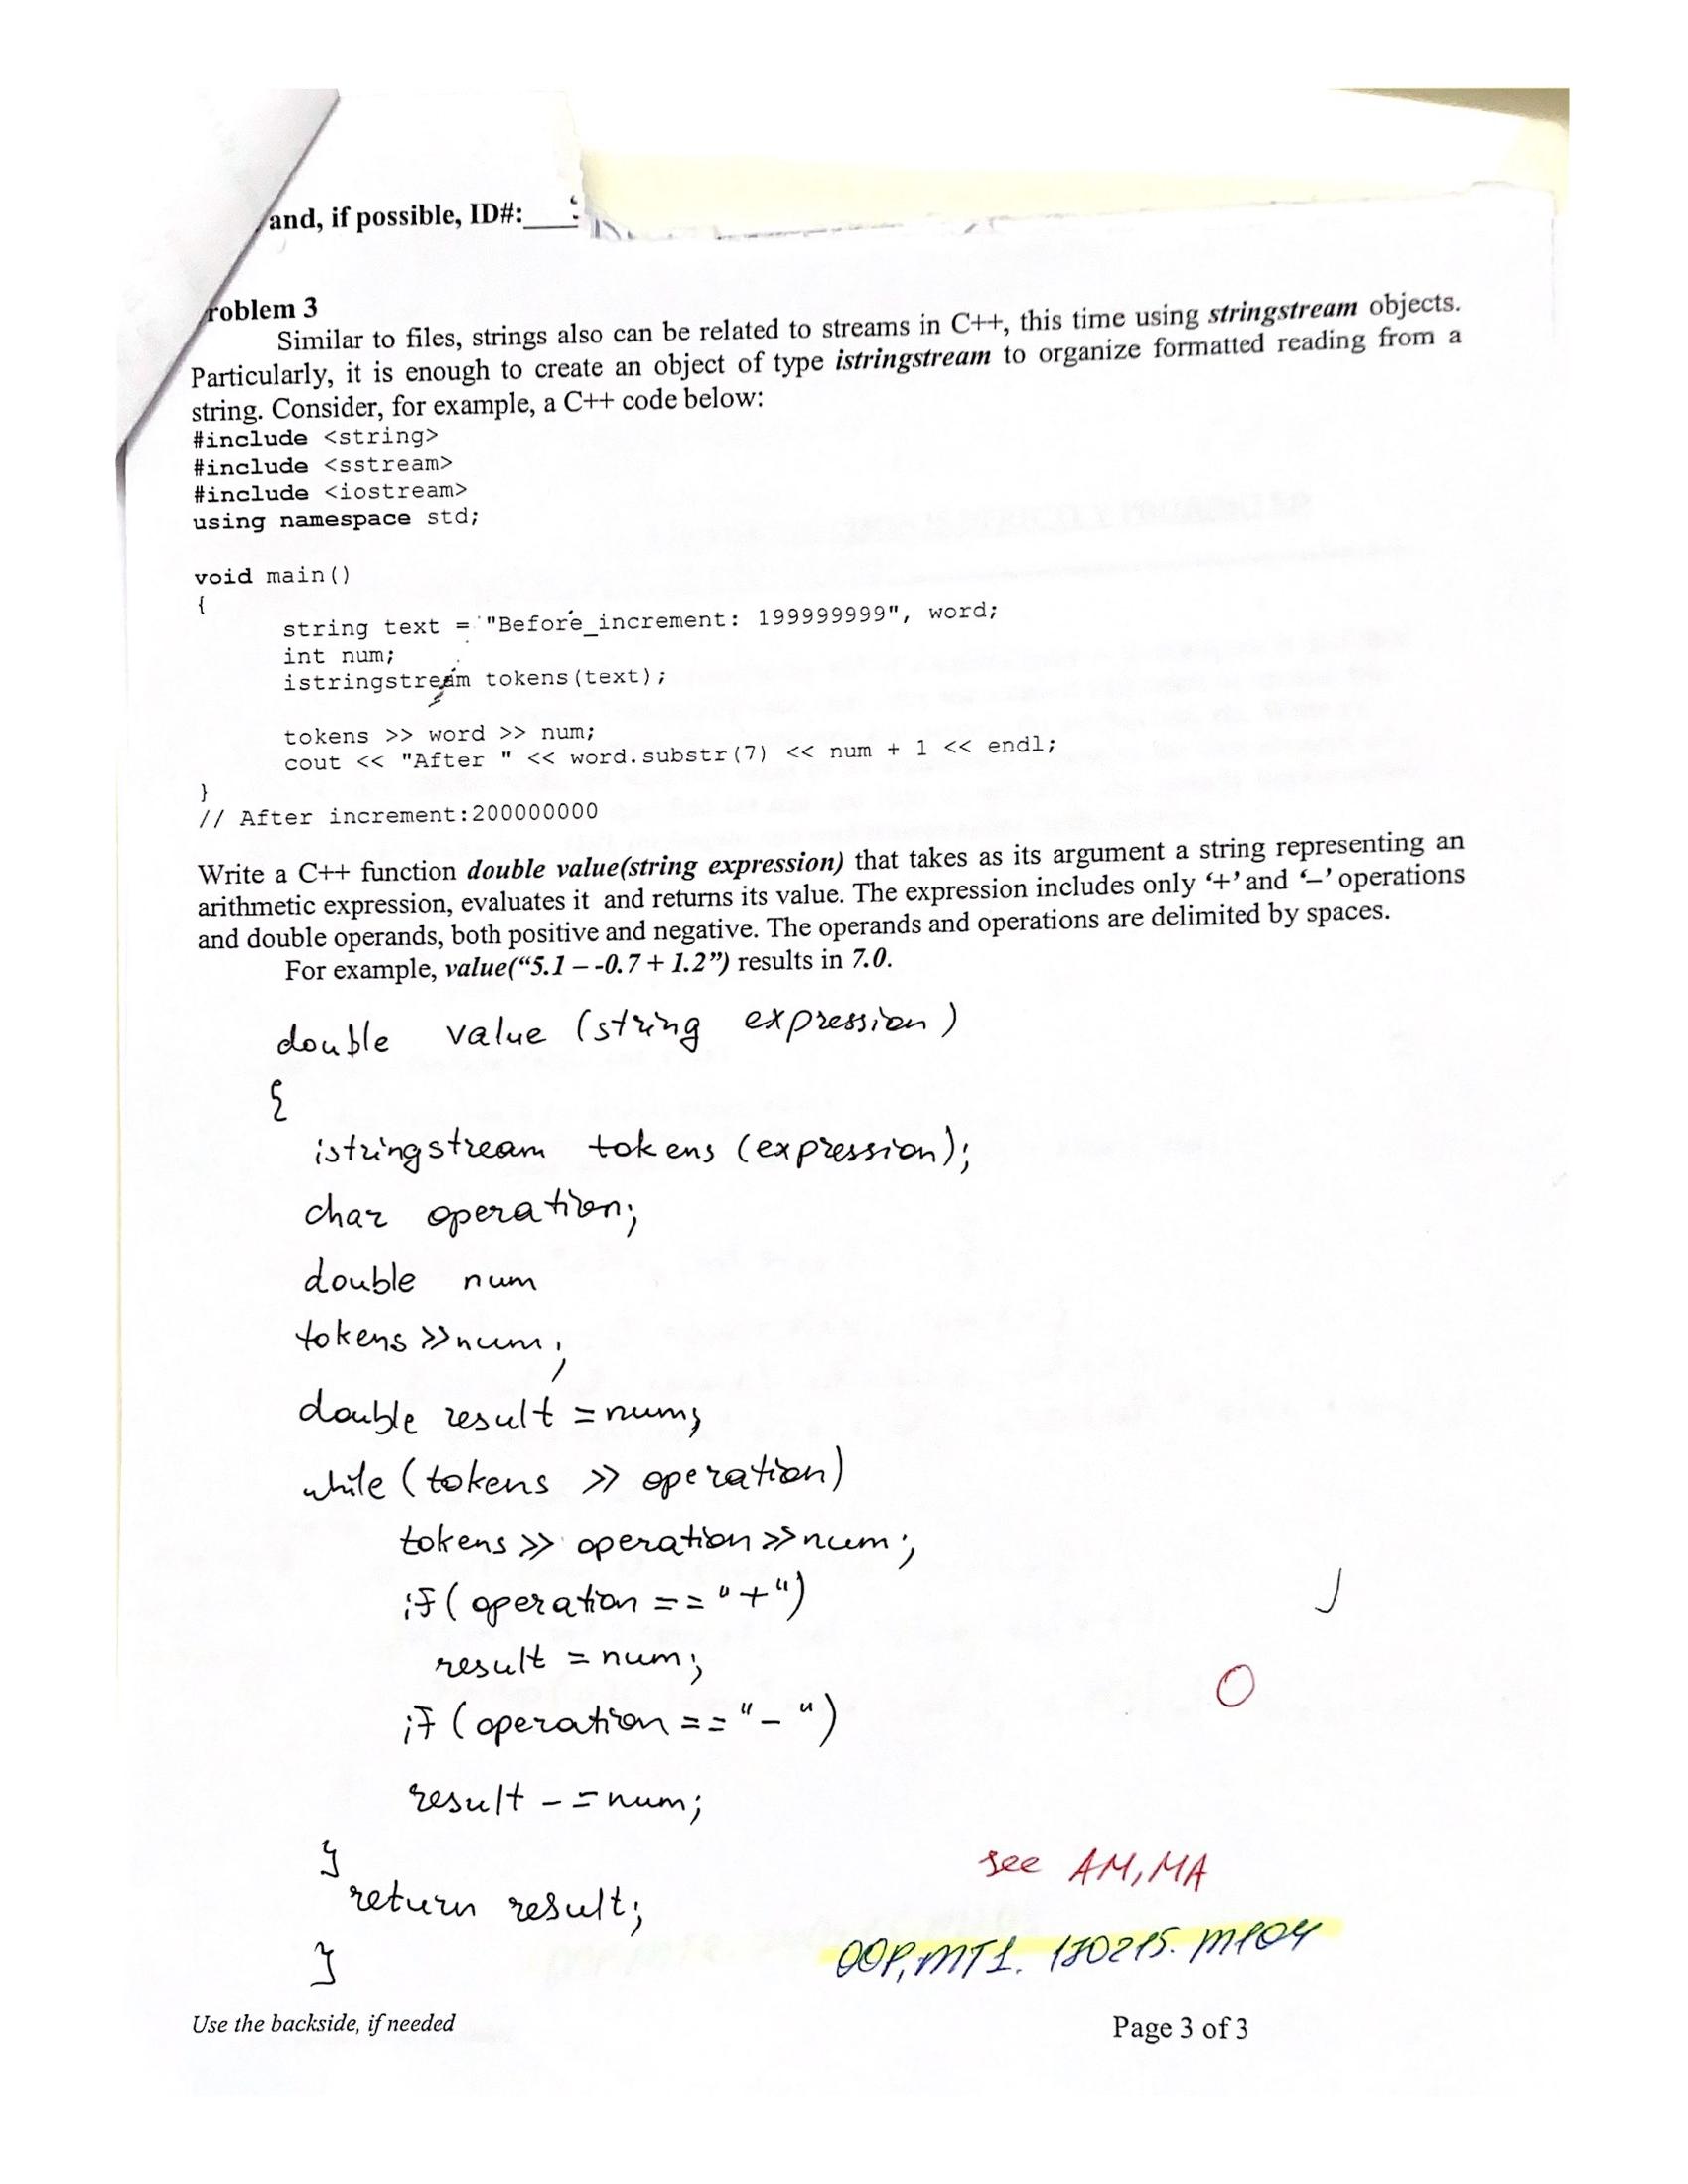 and, if possible, ID#:
roblem 3
Similar to files, strings also can be related to streams in C++, this time using stringstream objects.
Particularly, it is enough to create an object of type istringstream to organize formatted reading from a
string. Consider, for example, a C++ code below:
#include <string>
#include <sstream>
#include <iostream>
using namespace std;
void main()
{
string text = "Before_increment: 199999999", word;
int num;
istringstream tokens(text);
tokens >> word >> num;
cout << "After " << word.substr(7) << num + 1 << endl;
}
// After increment:200000000
Write a C++ function double value(string expression) that takes as its argument a string representing an
arithmetic expression, evaluates it and returns its value. The expression includes only ‘+’ and ‘–’ operations
and double operands, both positive and negative. The operands and operations are delimited by spaces.
For example, value(“5.1 – -0.7 + 1.2”) results in 7.0.
double value (string expression)
{
istringstream tokens (expression);
char operation;
double num
tokens >> num;
double result = num;
while (tokens >> operation)
tokens >> operation >> num;
if (operation == "+")
result = num;
if (operation == "-")
result -= num;
}
return result;
}
0
see AM, MA
OOP, MT1. 170215. MP04
Use the backside, if needed
Page 3 of 3